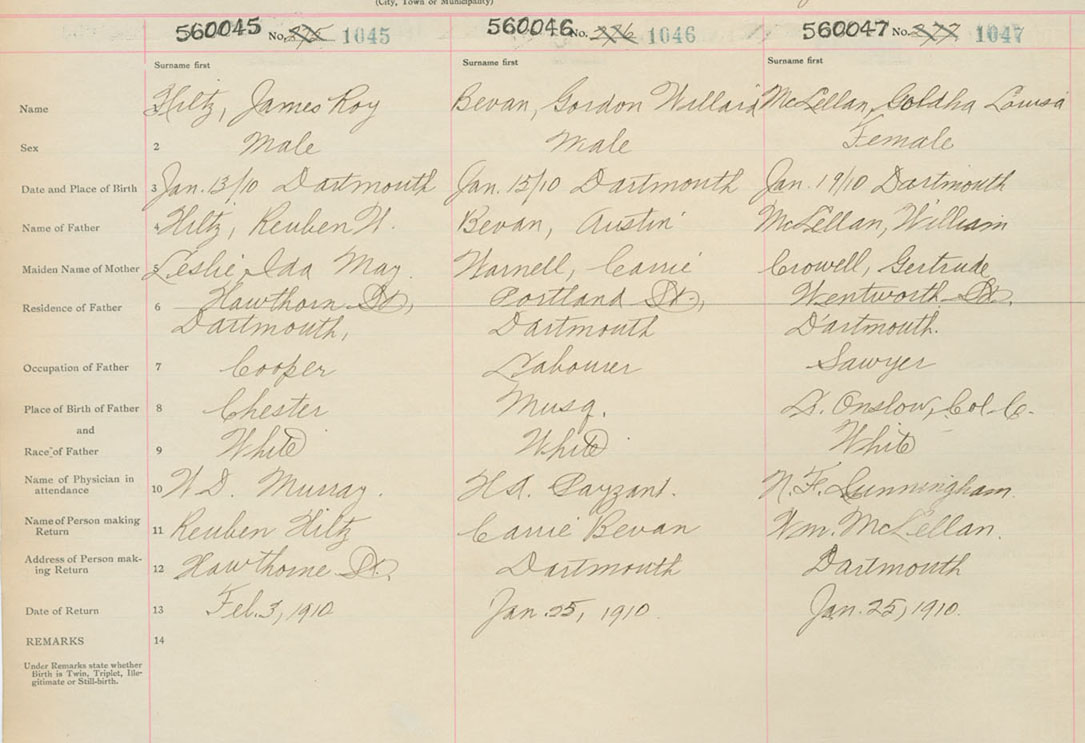 (City, Town or Municipality)
560045 No. 875 1045 560046 No. 876 1046 560047 No. 877 1047
Surname first Surname first Surname first
Name Hiltz, James Roy Bevan, Gordon Willard McLellan, Goldha Louisa
Sex 2 Male Male Female
Date and Place of Birth 3 Jan. 13/10 Dartmouth Jan. 15/10 Dartmouth Jan. 19/10 Dartmouth
Name of Father 4 Hiltz, Reuben W. Bevan, Austin McLellan, William
Maiden Name of Mother 5 Leslie Ida May. Warnell, Carrie Crowell, Gertrude
Residence of Father 6 Hawthorn St., Portland St., Wentworth St.
Dartmouth, Dartmouth Dartmouth.
Occupation of Father 7 Cooper Labourer Sawyer
Place of Birth of Father 8 Chester Musq. Onslow, Col. C.
and
Race of Father 9 White White White
Name of Physician in
attendance 10 W.D. Murray. Payzant. N.F. Cunningham.
Name of Person making
Return 11 Reuben Hiltz Carrie Bevan Wm. McLellan.
Address of Person mak-
ing Return 12 Hawthorne St. Dartmouth Dartmouth
Date of Return 13 Feb. 3, 1910 Jan. 25, 1910 Jan. 25, 1910.
REMARKS 14
Under Remarks state whether
Birth is Twin, Triplet, Ille-
gitimate or Still-birth.